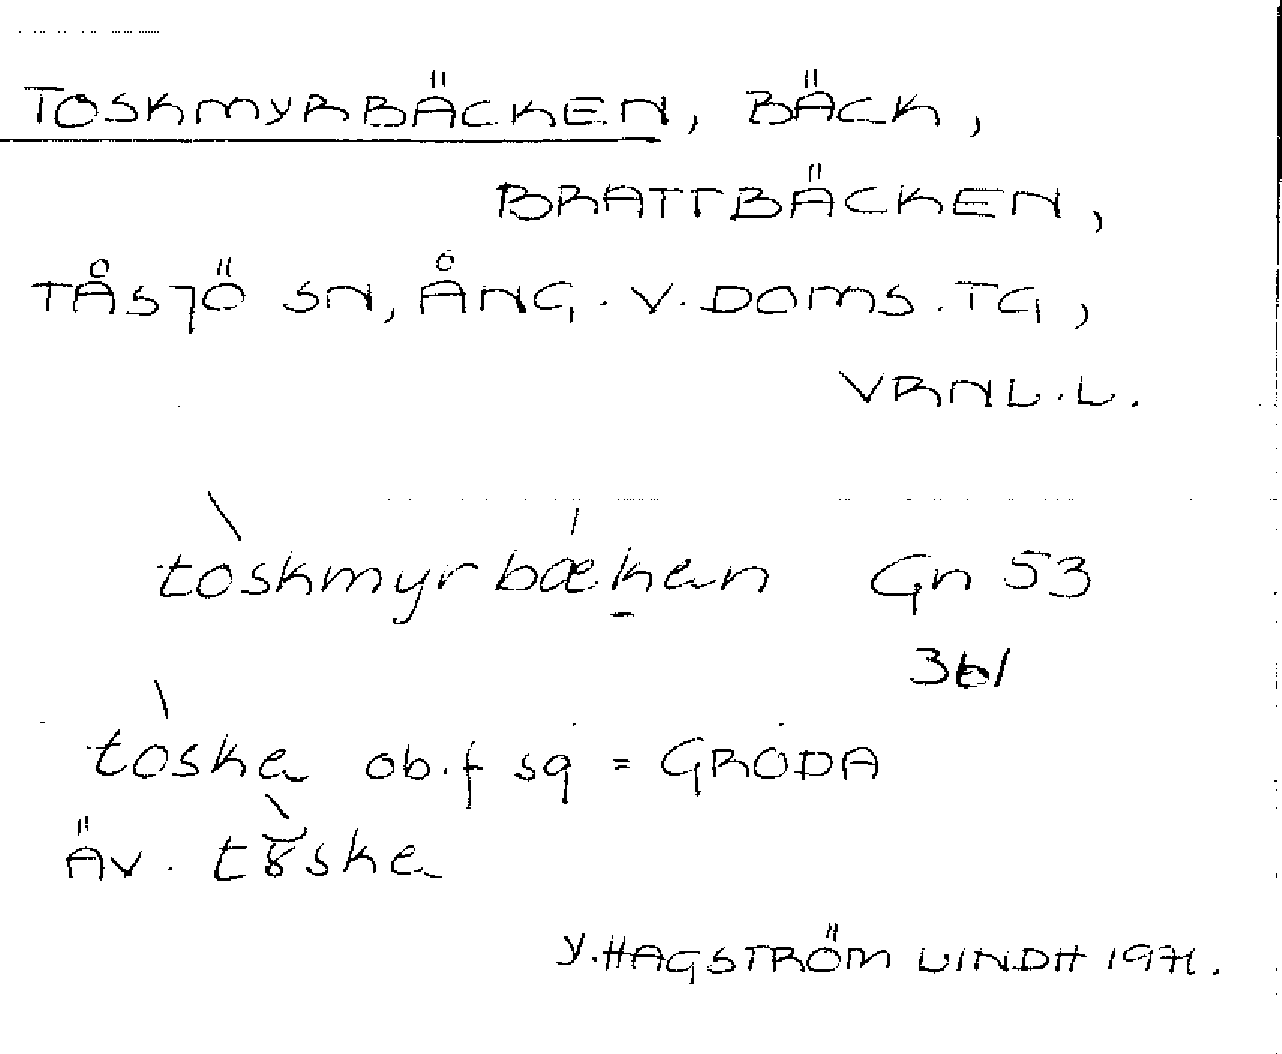 TOSKMYRBÄCKEN, BÄCK,
BRATTBÄCKEN,
TÅSJÖ SN, ÅNG. V. DOMS. TG,
VRNL. L.
tòskmyrbækan Gn 53
361
tòska ob. f sg = GRODA
ÄV. tòska
Y. HAGSTRÖM LINDH 1971.